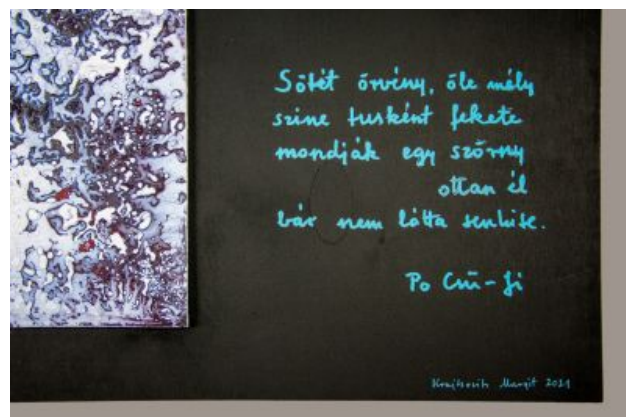 Sötét örvény, öle mély
szine tusként fekete
mondják egy szörny
ottan él
bár nem látta senkise.
Po Csü-ji
Margit 2021